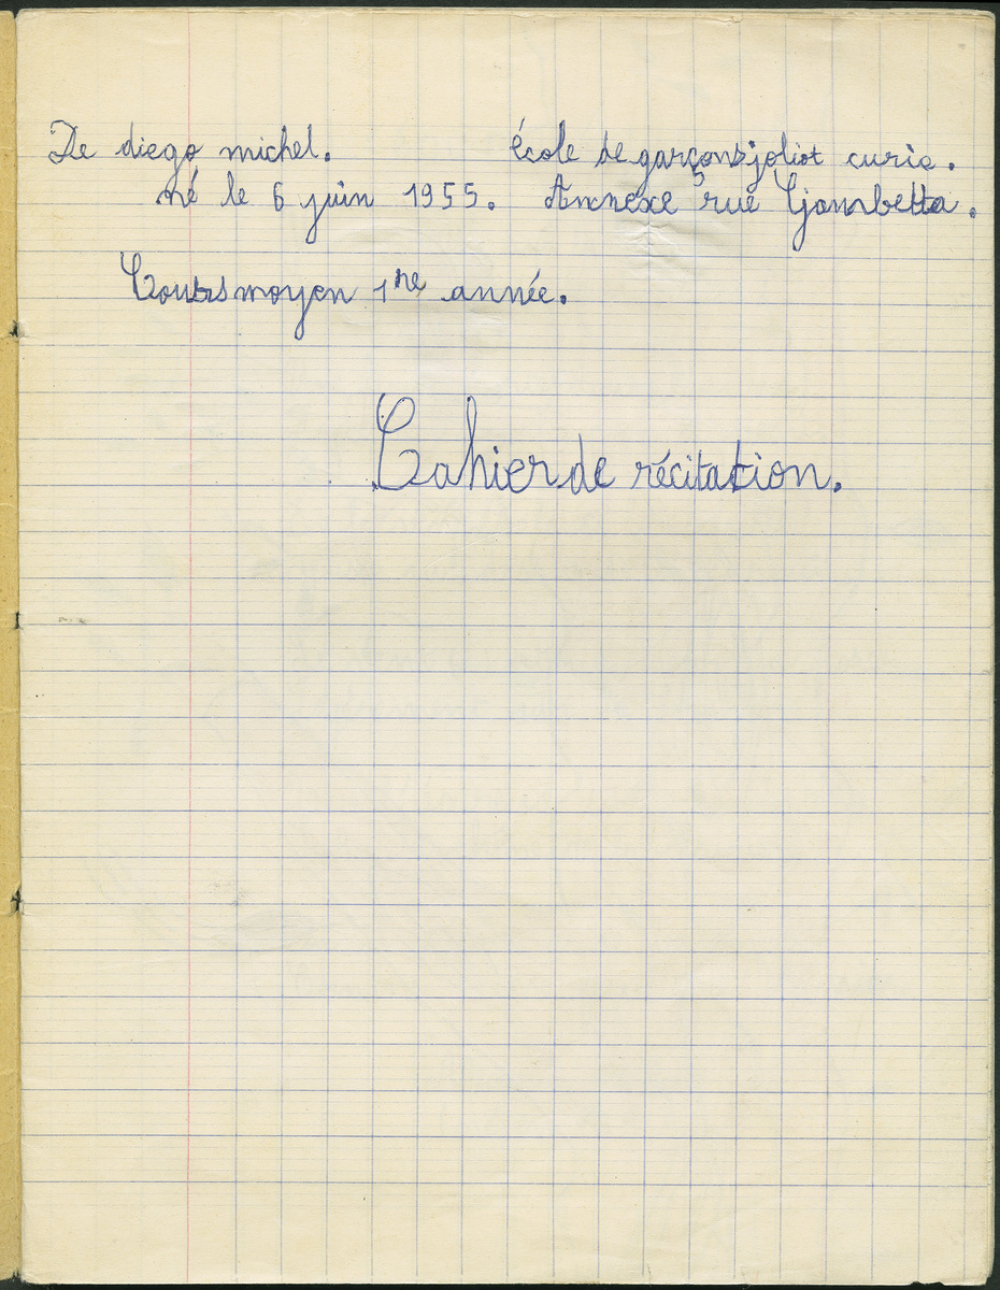 De diego michel. école de garçons joliot curie.
né le 6 juin 1955. Annexe 5 rue Gambetta.
Cours moyen 1re année.
Cahier de récitation.